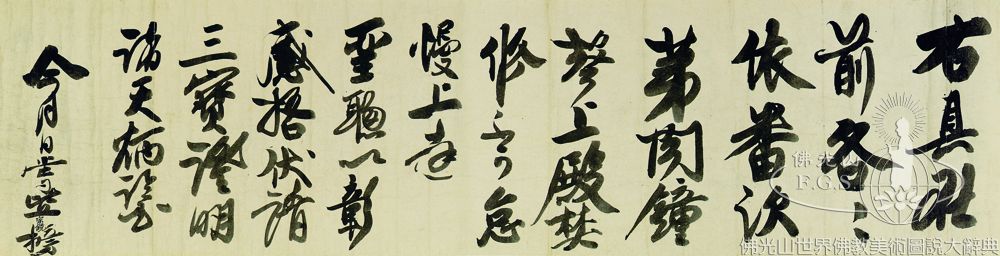 右具在
前各〻
依番次
第聞鐘
聲上殿焚
修不可怠
慢上達
聖聰以彰
感格伏請
三寶證明
諸天炳鑒
今月日堂
佛光山
F.G.S.
佛光山世界佛教美術圖說大辭典